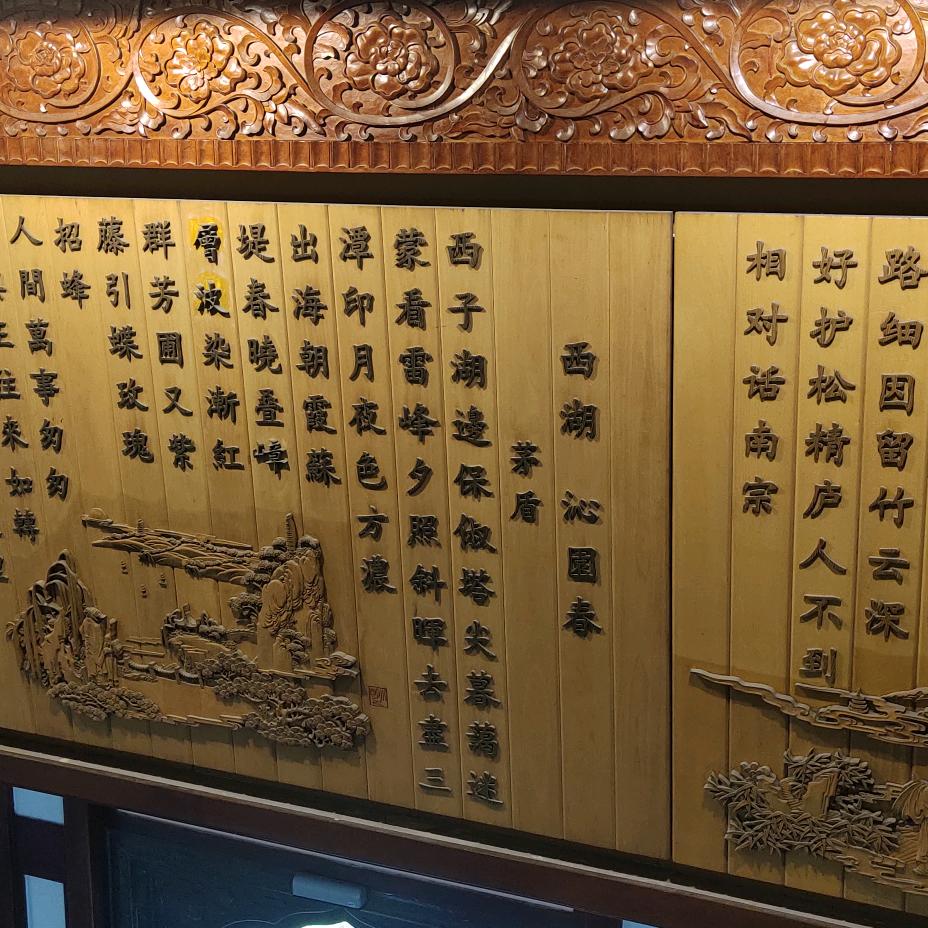 路细因留竹云深
好护松精庐人不到
相对话南宗
西湖 沁園春
茅盾
西子湖邊保俶塔尖暮藹迷
蒙看雷峰夕照斜暉去盡三
潭印月夜色方濃
出海朝霞蘇
堤春曉叠嶂
層波染漸紅
群芳圃又紫
藤引蝶玫瑰
招蜂
人間萬事匆匆
來如轉